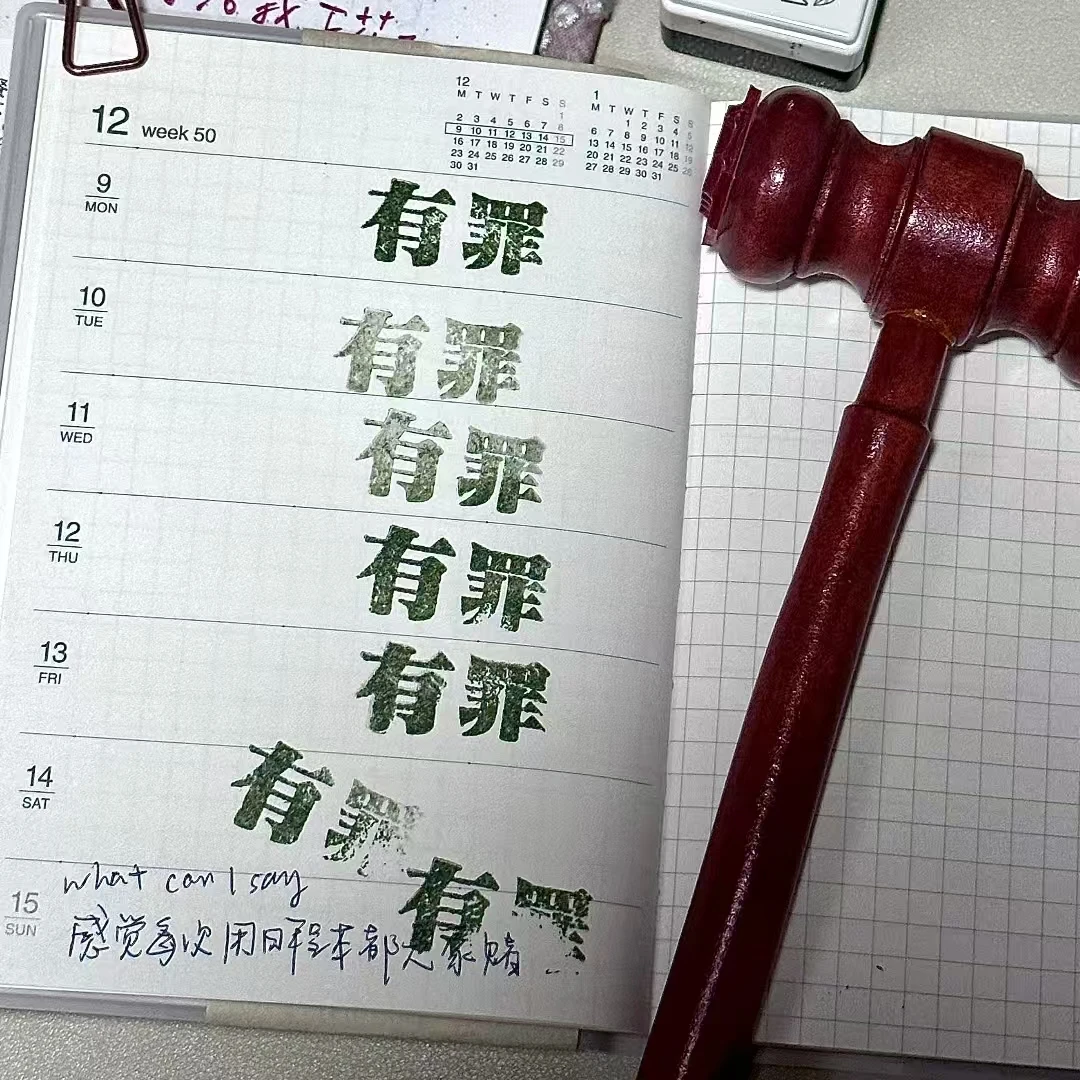 12 week 50
12
M T W T F S S
1
2 3 4 5 6 7 8
9 10 11 12 13 14 15
16 17 18 19 20 21 22
23 24 25 26 27 28 29
30 31
1
M T W T F S S
1 2 3 4 5
6 7 8 9 10 11 12
13 14 15 16 17 18 19
20 21 22 23 24 25 26
27 28 29 30 31
9
MON
有罪
10
TUE
有罪
11
WED
有罪
12
THU
有罪
13
FRI
有罪
14
SAT
有罪
what can I say
有罪
15
SUN
感觉每次用日程本都 豪赌